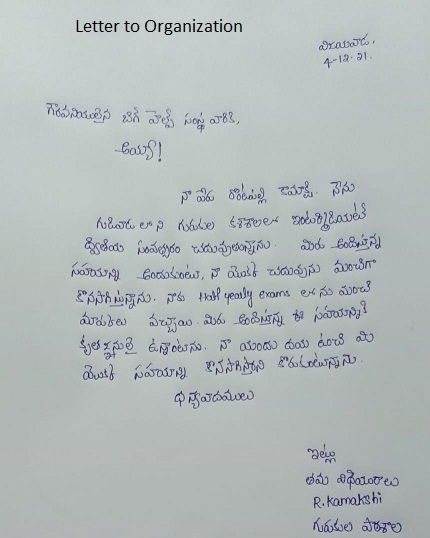 Letter to Organization
విజయవాడ,
4-12-21.
గౌరవనియులైన బిగ్ హెల్ప్ సంస్థ వారికి,
అయ్యా!
నా పేరు రొంటపల్లి కామాక్షి. నేను
గుడివాడ లో ని గురుకుల కళాశాలలో ఇంటర్మీడియట్
ద్వితీయ సంవత్సరం చదువుతున్నాను. మీరు అందిస్తున్న
సహయాన్ని అందుకుంటు, నా యొక్క చదువును మంచిగా
కొనసాగిస్తున్నాను. నాకు Half yearly exams లో ను మంచి
మార్కులు వచ్చాయి. మీరు అందిస్తున్న ఈ సహయన్నికి
కృతజ్ఞనులై ఉన్నాంటును. నా యందు దయ ఉంచి మీ
యొక్క సహయాన్ని కొనసాగిస్తారని కొరుకుంటున్నాను.
ధన్యవాదములు
ఇట్లు
తమ విధేయురాలు
R.Kamakshi
గురుకుల పాఠశాల